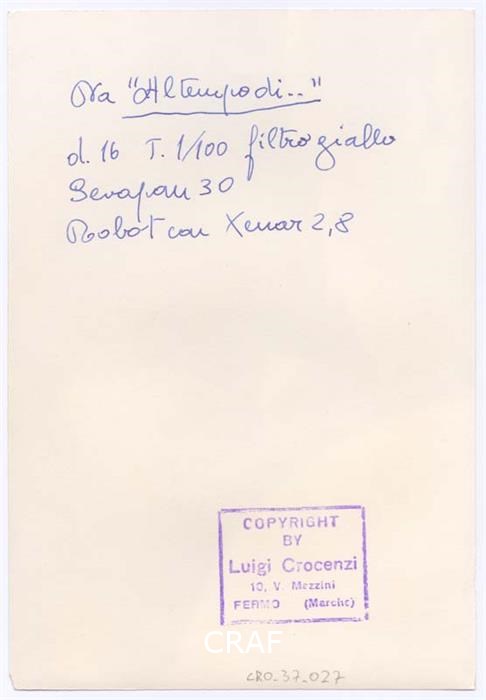 Da "Al tempo di.."
d. 16 T. 1/100 filtro giallo
Sevapan 30
Robot con Xenar 2,8
COPYRIGHT
BY
Luigi Crocenzi
10, V. Mezzini
FERMO (Marche)
CRAF
CRO_37_027